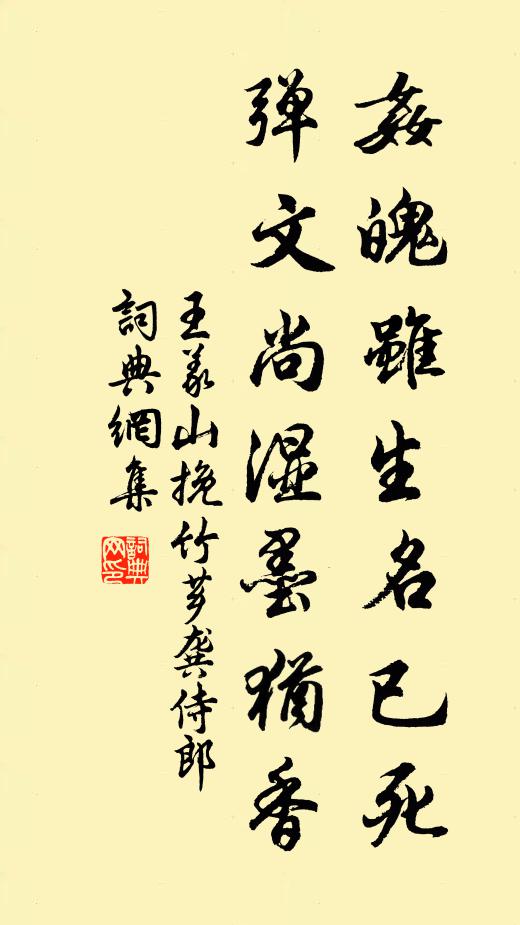 姦魄雖生名已死
弹文尚濕墨猶香
王義山挽竹芗龔侍郎
詞典網集
詞典网印